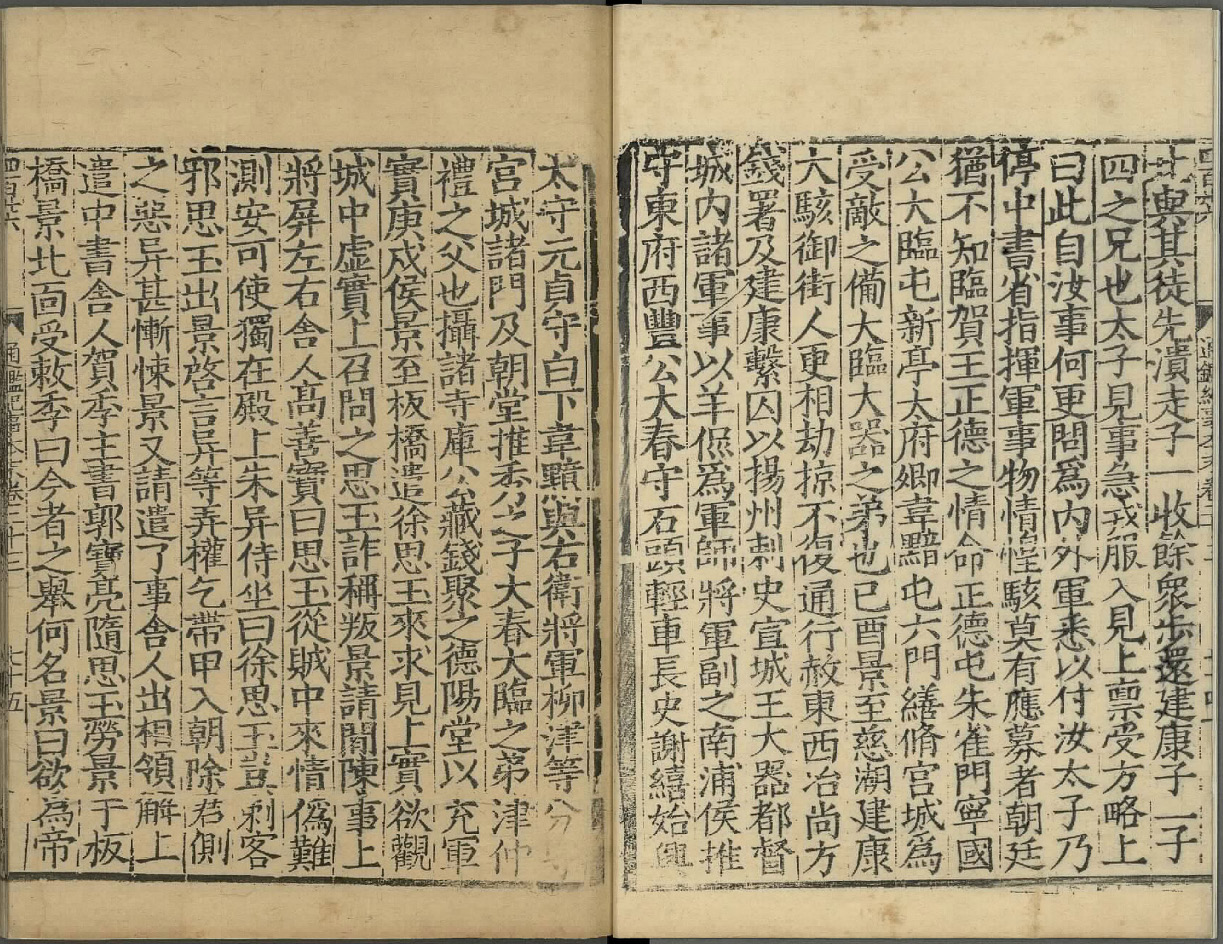 北與其徒先潰走子一收餘衆步還建康子一子
四之兄也太子見事急戎服入見上禀受方略上
曰此自汝事何更問爲内外軍悉以付汝太子乃
停中書省指揮軍事物情惶駭莫有應募者朝廷
猶不知臨賀王正德之情命正德屯朱雀門寧國
公大臨屯新亭太府卿韋黯屯六門繕脩宫城爲
受敵之備大臨大器之弟也已酉景至慈湖建康
大駭御街人更相劫掠不復通行赦東西冶尚方
錢署及建康繫囚以揚州刺史宣城王大器都督
城内諸軍事以羊侃爲軍師將軍副之南浦侯推
守東府西豐公大春守石頭輕車長史謝禧始興
太守元貞守白下韋黯與右衛將軍柳津等分守
宫城諸門及朝堂推秀之子大春大臨之弟津仲
禮之父也攝諸寺庫公藏錢聚之德陽堂以充軍
實庚戌侯景至板橋遣徐思玉來求見上實欲觀
城中虚實上召問之思玉詐稱叛景請閒陳事上
將屏左右舍人髙善寳曰思玉從賊中來情僞難
測安可使獨在殿上朱异侍坐曰徐思玉豈刺客
邪思玉出景啓言异等弄權乞帶甲入朝除君側
之惡异甚慚悚景又請遣了事舍人出相領解上
遣中書舍人賀季主書郭寳亮隨思玉勞景于板
橋景北面受敕季曰今者之舉何名景曰欲爲帝